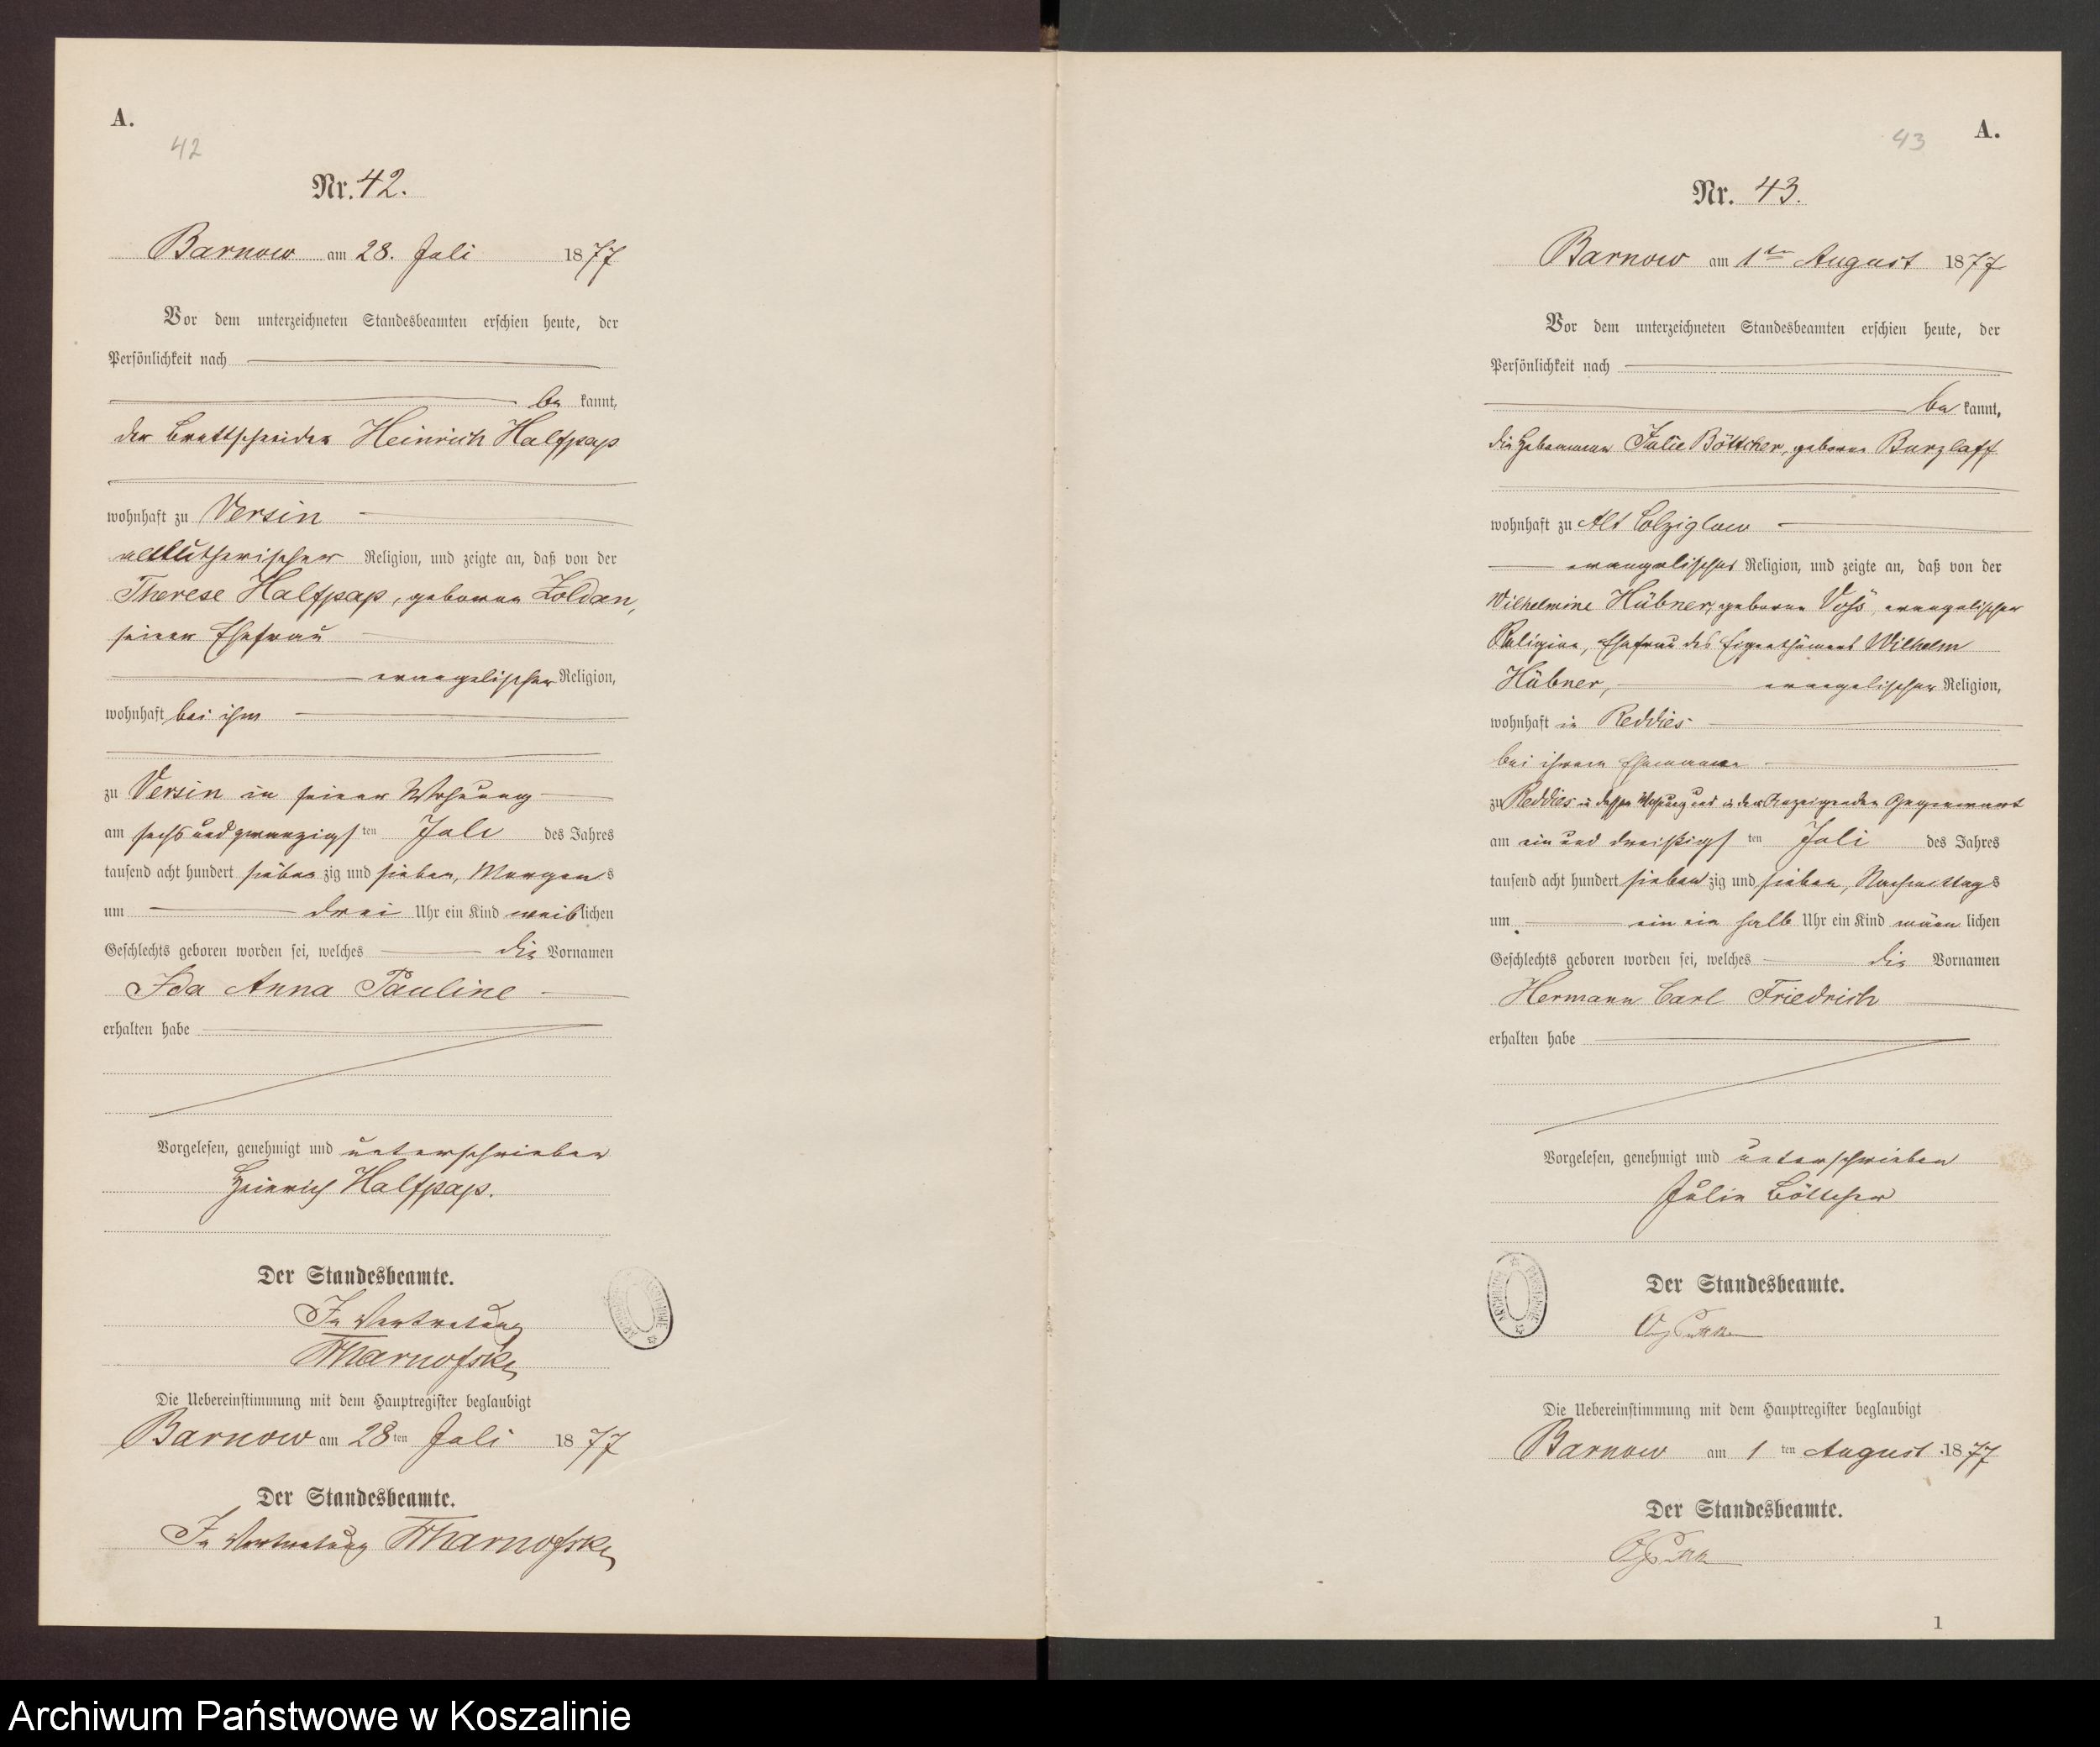 A.
42
Nr. 42.
Barnow am 28. Juli 1877
Vor dem unterzeichneten Standesbeamten erschien heute, der
Persönlichkeit nach
be kannt,
der Brettschneider Heinrich Halfpap
wohnhaft zu Versin
altlutherischer Religion, und zeigte an, daß von der
Therese Halfpap, geborene Zoldan,
seiner Ehefrau
evangelischer Religion,
wohnhaft bei ihm
zu Versin in seiner Wohnung
am sechs und zwanzigsten Juli des Jahres
tausend acht hundert sieben zig und sieben, Morgens
um drei Uhr ein Kind weiblichen
Geschlechts geboren worden sei, welches die Vornamen
Ida Anna Pauline
erhalten habe
Vorgelesen, genehmigt und unterschrieben
Heinrich Halfpap.
Der Standesbeamte.
In Vertretung
Die Uebereinstimmung mit dem Hauptregister beglaubigt
Barnow am 28ten Juli 1877
Der Standesbeamte.
In Vertretung
43
A.
Nr. 43.
Barnow am 1ten August 1877
Vor dem unterzeichneten Standesbeamten erschien heute, der
Persönlichkeit nach
be kannt,
die Hebamme Julie Böttcher, geborene Burzlaff
wohnhaft zu Alt Colziglow
evangelischer Religion, und zeigte an, daß von der
Wilhelmine Hübner, geborene Voß, evangelischer
Religion, Ehefrau des Eigenthümers Wilhelm
Hübner, evangelischer Religion,
wohnhaft in Reddies
bei ihrem Ehemanne
zu Reddies in dessen Wohnung und in der Anzeigenden Gegenwart
am ein und dreißigsten Juli des Jahres
tausend acht hundert sieben zig und sieben, Nachmittags
um ein ein halb Uhr ein Kind männ lichen
Geschlechts geboren worden sei, welches die Vornamen
Hermann Carl Friedrich
erhalten habe
Vorgelesen, genehmigt und unterschrieben
Julie Böttcher
Der Standesbeamte.
Die Uebereinstimmung mit dem Hauptregister beglaubigt
Barnow am 1 ten August 1877
Der Standesbeamte.
1
Archiwum Państwowe w Koszalinie